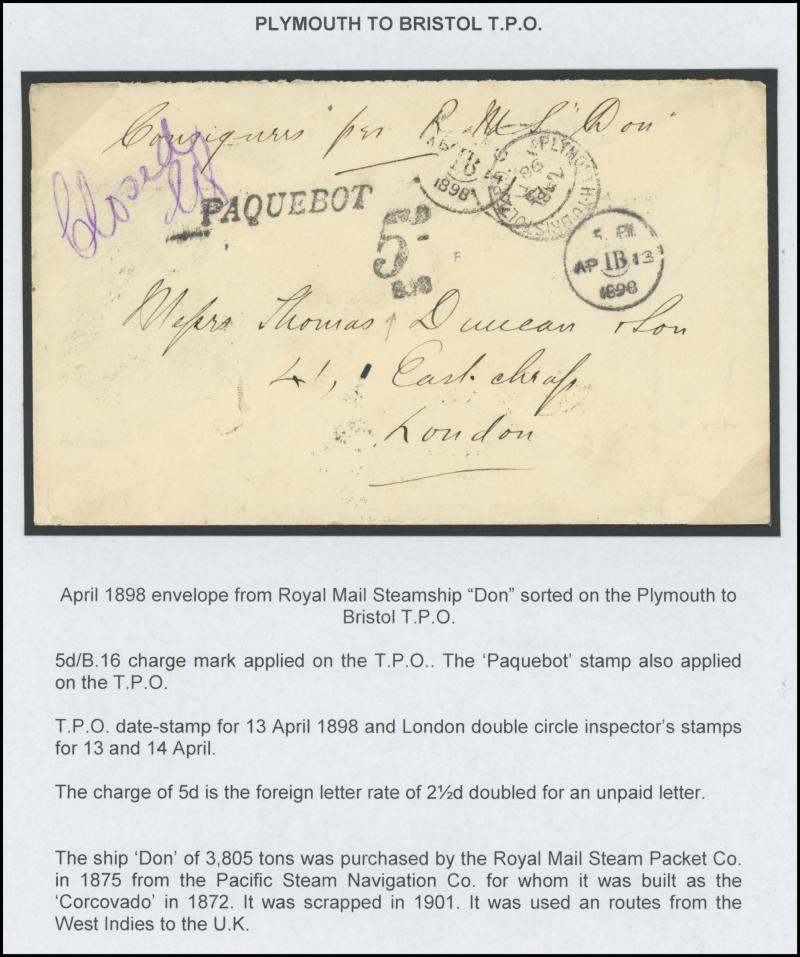 PLYMOUTH TO BRISTOL T.P.O.
Consignees' per R.M.S "Don"
Closed
PAQUEBOT
IB
1898
PLYMOUTH-TO-BRISTOL
98
5D
B.16
5. PM
AP IB 13
1898
F
Messrs Thomas Duncan & Son
41, East cheap
London
April 1898 envelope from Royal Mail Steamship “Don” sorted on the Plymouth to
Bristol T.P.O.
5d/B.16 charge mark applied on the T.P.O.. The ‘Paquebot’ stamp also applied
on the T.P.O.
T.P.O. date-stamp for 13 April 1898 and London double circle inspector’s stamps
for 13 and 14 April.
The charge of 5d is the foreign letter rate of 2½d doubled for an unpaid letter.
The ship ‘Don’ of 3,805 tons was purchased by the Royal Mail Steam Packet Co.
in 1875 from the Pacific Steam Navigation Co. for whom it was built as the
‘Corcovado’ in 1872. It was scrapped in 1901. It was used an routes from the
West Indies to the U.K.